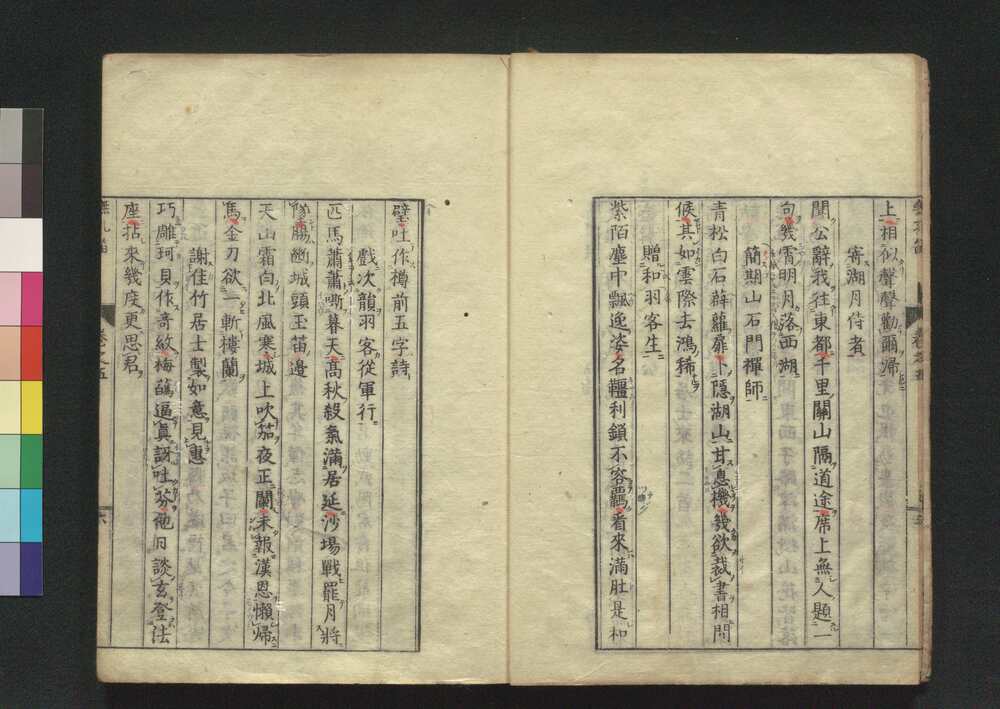 上相似聲聲勸爾歸
寄湖月侍者
聞公辭我往東都千里關山隔道途席上無人題一
句幾霄明月落西湖
簡期山石門禪師
青松白石薜蘿扉下隱湖山甘息機幾欲裁書相問
候其如雲際去鴻稀
贈和羽客生
紫陌塵中飄逸姿名韁利鎖不容羈看來滿肚是和
璧吐作樽前五字詩
戲次韻羽客從軍行
匹馬蕭蕭嘶暮天高秋殺氣滿居延沙場戰罷月將
墜腸斷城頭玉笛邊
天山霜白北風寒城上吹笳夜正闌未報漢恩懶歸
馬金刀欲一斬樓蘭
謝佳竹居士製如意見惠
巧雕珂貝作奇紋梅蘤逼真訝吐芬他日談玄登法
座拈來幾度更思君
卷之五